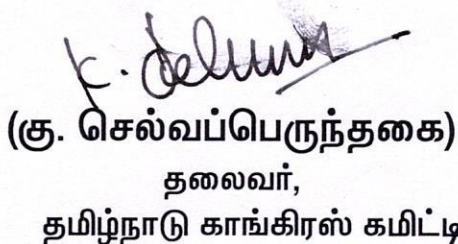 (கு. செல்வப்பெருந்தகை)
தலைவர்,
தமிழ்நாடு காங்கிரஸ் கமிட்டி